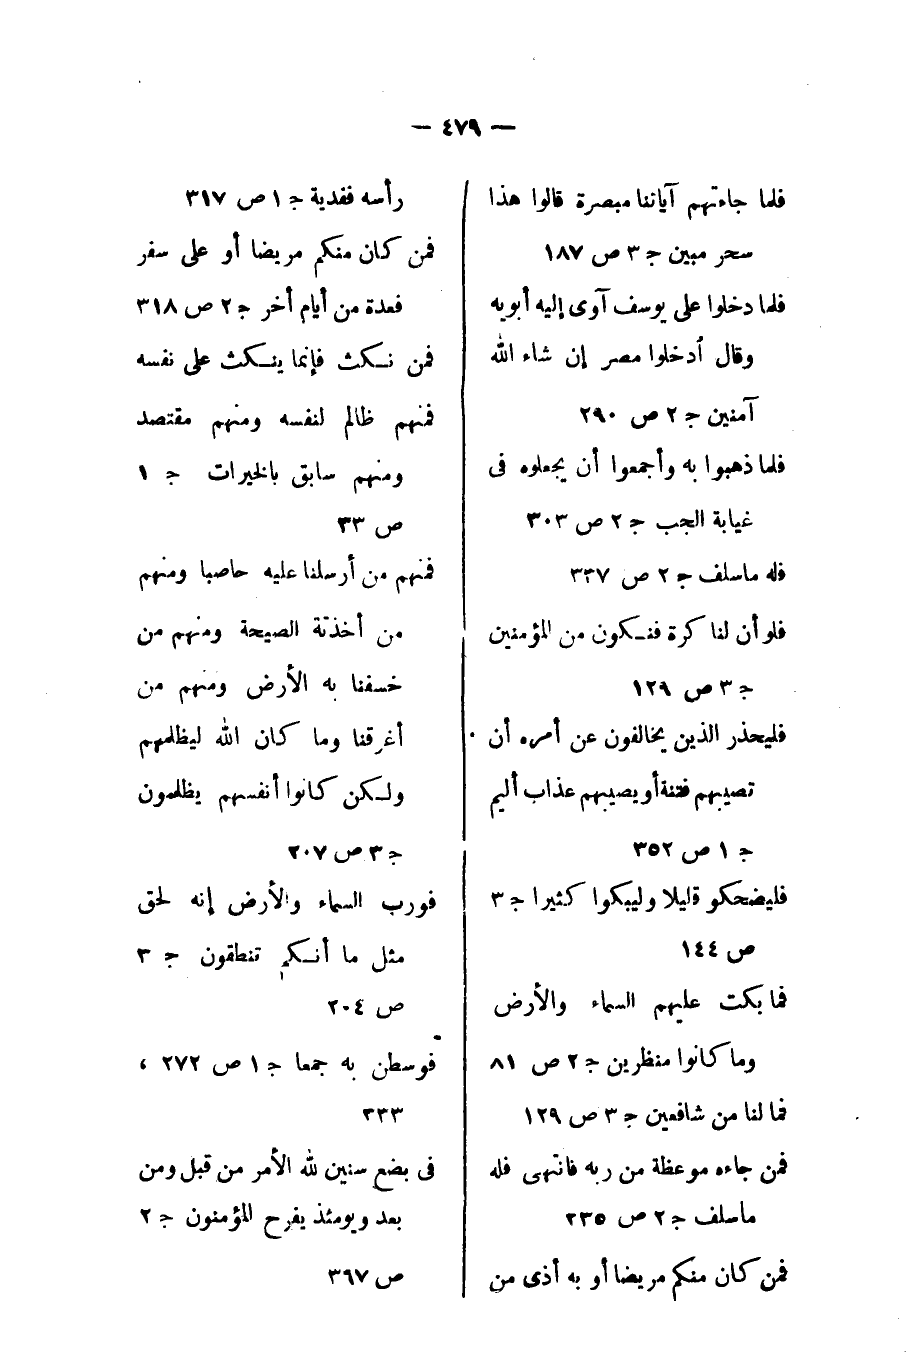 — ٤٧٩ —
فلما جاءتهم آياتنا مبصرة قالوا هذا
سحر مبين ج ٣ ص ١٨٧
فلما دخلوا على يوسف آوى إليه أبويه
وقال أدخلوا مصر إن شاء الله
آمنين ج ٢ ص ٢٩٠
فلما ذهبوا به وأجمعوا أن يجعلوه فى
غيابة الجب ج ٢ ص ٣٠٣
فله ماسلف ج ٢ ص ٣٣٧
فلو أن لنا كرة فنكون من المؤمنين
ج ٣ ص ١٢٩
فليحذر الذين يخالفون عن أمره أن
تصيبهم فتنة أو يصيبهم عذاب أليم
ج ١ ص ٣٥٢
فليضحكو قليلا وليبكوا كثيرا ج ٣
ص ١٤٤
فما بكت عليهم السماء والأرض
وما كانوا منظرين ج ٢ ص ٨١
فما لنا من شافعين ج ٣ ص ١٢٩
فمن جاءه موعظة من ربه فانتهى فله
ماسلف ج ٢ ص ٢٣٥
فمن كان منكم مريضا أو به أذى من
رأسه ففدية ج ١ ص ٣١٧
فمن كان منكم مريضا أو على سفر
فعدة من أيام أخر ج ٢ ص ٣١٨
فمن نكث فإنما ينكث على نفسه
فمنهم ظالم لنفسه ومنهم مقتصد
ومنهم سابق بالخيرات ج ١
ص ٣٣
فمنهم من أرسلنا عليه حاصبا ومنهم
من أخذتة الصيحة ومنهم من
خسفنا به الأرض ومنهم من
أغرقنا وما كان الله ليظلمهم
ولكن كانوا أنفسهم يظلمون
ج ٣ ص ٢٠٧
فورب السماء والأرض إنه لحق
مثل ما أنكم تنطقون ج ٣
ص ٢٠٤
فوسطن به جمعا ج ١ ص ٢٧٢ ،
٣٣٣
فى بضع سنين لله الأمر من قبل ومن
بعد ويومئذ يفرح المؤمنون ج ٢
ص ٣٩٧